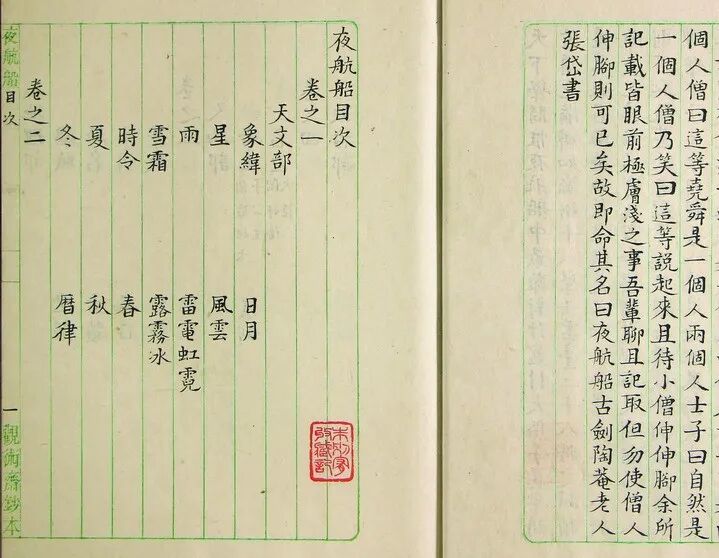 個人僧曰這等堯舜是一個人兩個人士子曰自然是
一個人僧乃笑曰這等說起來且待小僧伸伸腳余所
記載皆眼前極膚淺之事吾輩聊且記取但勿使僧人
伸腳則可已矣故即命其名曰夜航船古劍陶菴老人
張岱書
夜航船目次
卷之一
天文部
象緯 日月
星 風雲
雨 雷電虹霓
雪霜 露霧冰
時令 春
夏 秋
冬 曆律
卷之二
夜航船目次 一 觀術齋鈔本
朱別宥收藏記